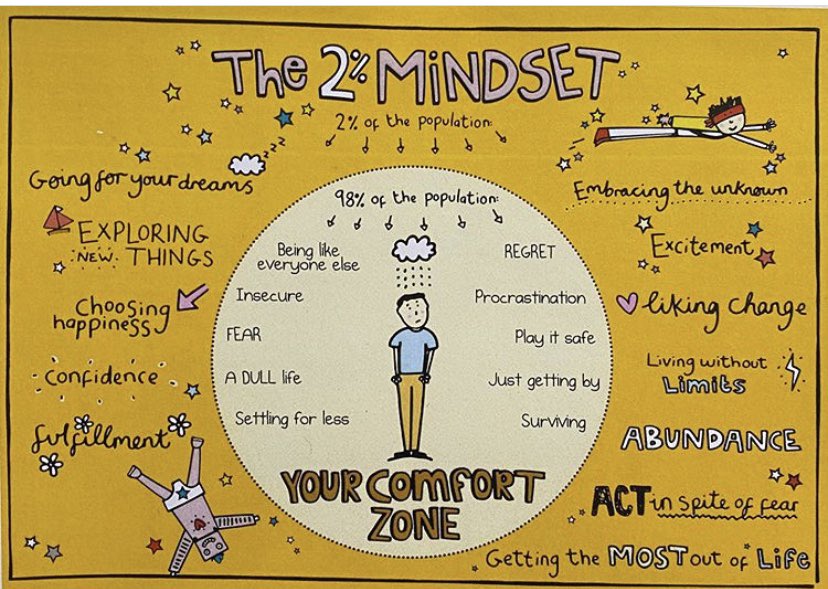 The 2% MiNDSET
2% of the population:
Going for your dreams
zzz
EXPLORING
NEW THINGS
Choosing
happiness
Confidence
fulfillment
98% of the population:
Being like
everyone else
Insecure
FEAR
A DULL life
Settling for less
REGRET
Procrastination
Play it safe
Just getting by
Surviving
YOUR COMFORT
ZONE
Embracing the unknown
Excitement
liking change
Living without
Limits
ABUNDANCE
ACT in spite of fear
Getting the MOST out of Life